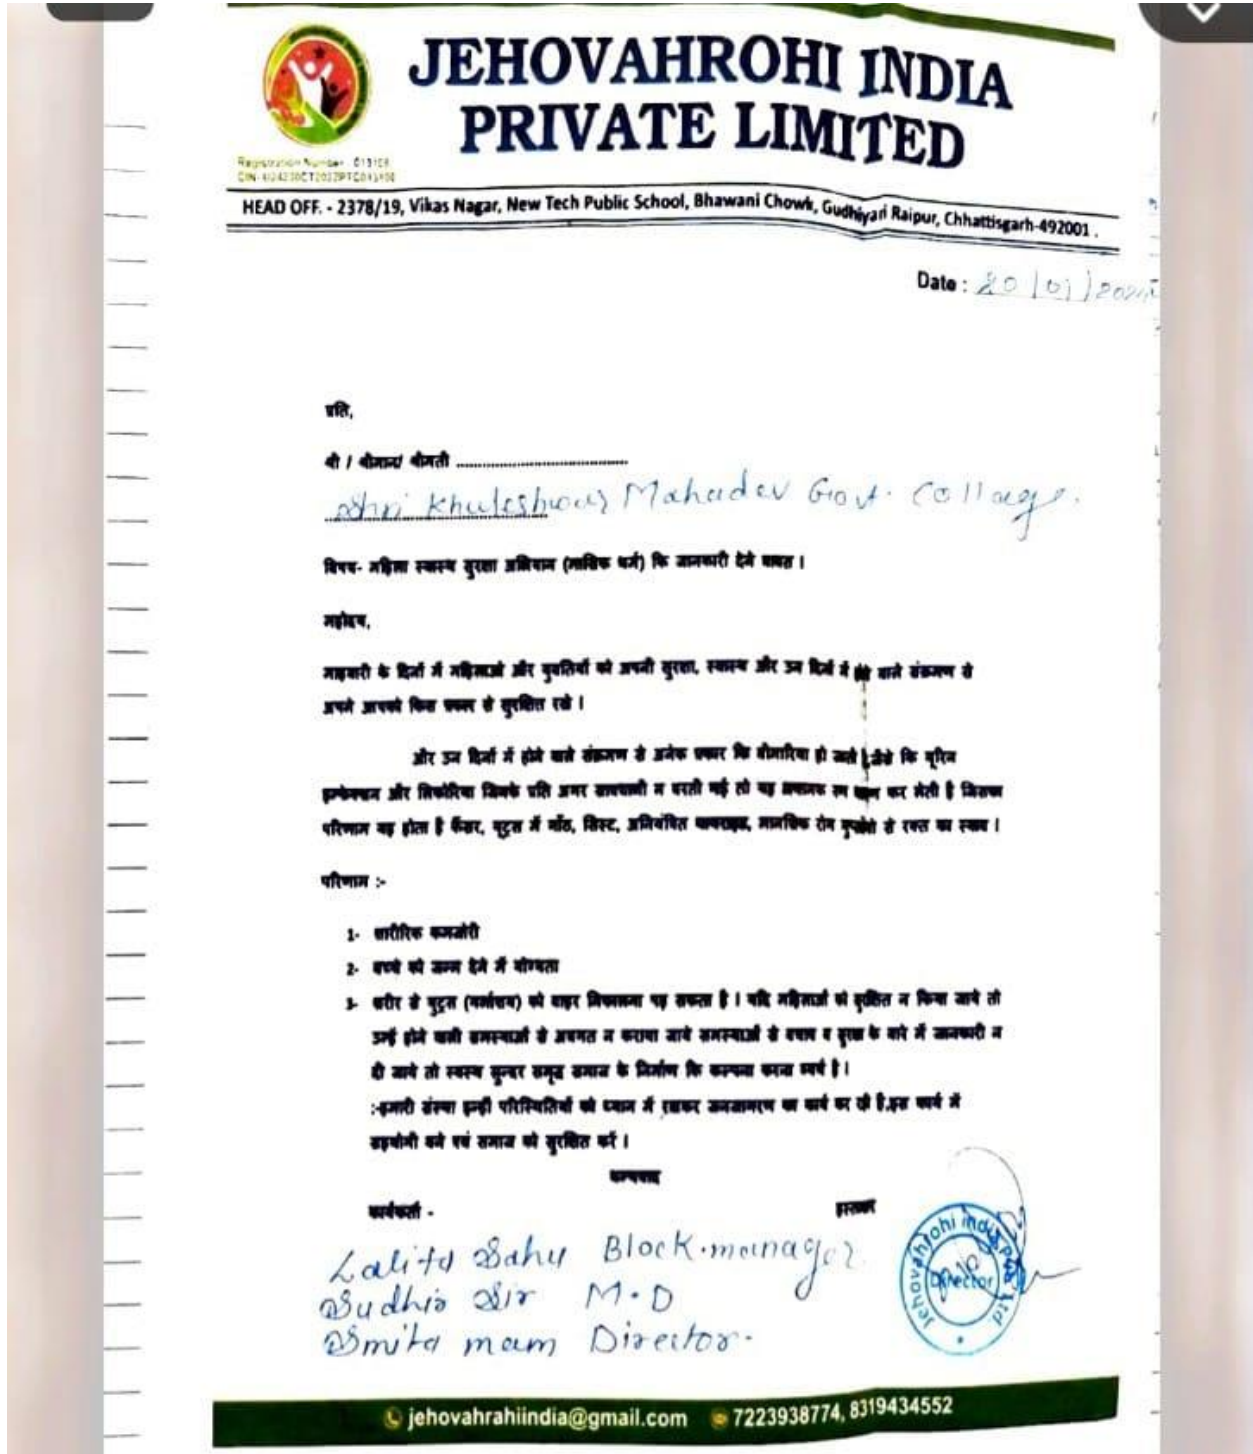 JEHOVAHROHI INDIA
PRIVATE LIMITED
Registration Number
HEAD OFF. - 2378/19, Vikas Nagar, New Tech Public School, Bhawani Chowk, Gudhiyari Raipur, Chhattisgarh-492001 .
Date : 20/01/202
प्रति,
श्री / श्रीमान/ श्रीमती ..........................................
Shri Khuleshwar Mahadev Govt. College.
विषय- महिला स्वास्थ सुरक्षा अभियान (मासिक धर्म) कि जानकारी देने बाबत ।
महोदय,
माहवारी के दिनों में महिलाओ और युवतियों को अपनी सुरक्षा, स्वास्थ और उन दिनों में होने वाले संक्रमण से
अपने आपको किस प्रकार से सुरक्षित रखे ।
और उन दिनों में होने वाले संक्रमण से अनेक प्रकार कि बीमारिया हो जाती है,जैसे कि यूरिन
इन्फेक्शन और लिकोरिया जिसके प्रति अगर सावधानी न बरती गई तो यह भयानक रूप धारण कर लेती है जिसका
परिणाम यह होता है कैंसर, यूट्रस में गाँठ, सिस्ट, अनियंत्रित थायराइड, मानसिक रोग से रक्त का स्त्राव ।
परिणाम :-
1- शारीरिक कमजोरी
2- बच्चे को जन्म देने में योग्यता
3- शरीर से यूट्रस (गर्भाशय) को बाहर निकालना पड़ सकता है । यदि महिलाओं को सुरक्षित न किया जाये तो
उन्हें होने वाली समस्याओं से अवगत न कराया जाये समस्याओं से बचाव व सुरक्षा के बारे में जानकारी न
दी जाये तो स्वस्थ सुन्दर समृद्ध समाज के निर्माण कि कल्पना करना व्यर्थ है ।
:-हमारी संस्था इन्ही परिस्थितियों को ध्यान में रखकर जनजागरण का कार्य कर रही है,इस कार्य में
सहयोगी बने एवं समाज को सुरक्षित करें ।
धन्यवाद
कार्यकर्ता - हस्ताक्षर
Lalita Sahu Block.manager
Sudhir Sir M.D
Smita mam Director.
Jehovahrohi india Pvt. Ltd.
Director
jehovahrahiindia@gmail.com 7223938774, 8319434552